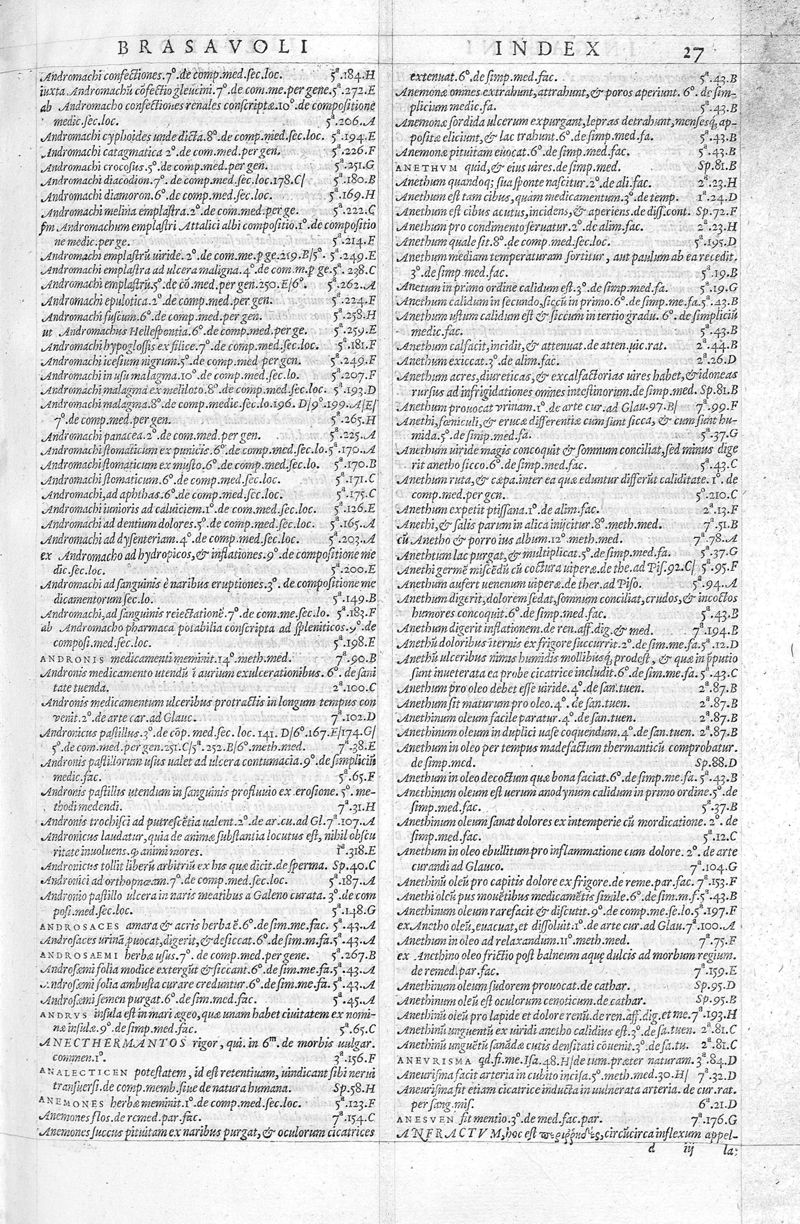 BRASAVOLI
Andromachi confectiones.7°.de comp.med.sec.loc. 5ª.184.H
iuxta Andromachū cōfectio gleucini.7°.de com.me.per gene.5ª.272.E
ab Andromacho confectiones renales conscriptæ.10°.de compositione
medic.sec.loc. 5ª.206.A
Andromachi cyphoides unde dicta.8°.de comp.med.sec.loc. 5ª.194.E
Andromachi catagmatica 2°.de com.med.per gen. 5ª.226.F
Andromachi crocosus.5°.de comp.med.per gen. 5ª.251.G
Andromachi diacodion.7°.de comp.med.sec.loc.178.C/ 5ª.180.B
Andromachi diamoron.6°.de comp.med.sec.loc. 5ª.169.H
Andromachi melina emplastra.2°.de com.med.per ge. 5ª.222.C
fm Andromachum emplastri Attalici albi compositio.1°.de compositio
ne medic.per ge. 5ª.214.F
Andromachi emplastrū uiride.2°.de com.me.p ge.219.B/5°. 5ª.249.E
Andromachi emplastra ad ulcera maligna.4°.de com.m.p ge.5ª.238.C
Andromachi emplastrū.5°.de cō.med.per gen.250.E/6°. 5ª.262.A
Andromachi epulotica 2°.de comp.med.per gen. 5ª.224.F
Andromachi fuscum.6°.de comp.med.per gen. 5ª.258.H
ut Andromachus Hellespontia.6°.de comp.med.per ge. 5ª.259.E
Andromachi hypoglossis ex silice.7°.de comp.med.sec.loc. 5ª.181.F
Andromachi icesium nigrum.5°.de comp.med.per gen. 5ª.249.F
Andromachi in usu malagma.10°.de comp.med.sec.lo. 5ª.207.F
Andromachi malagma ex meliloto.8°.de comp.med.sec.loc. 5ª.193.D
Andromachi malagma.8°.de comp.medic.sec.lo.196. D/9°.199.A/E/
7°.de comp.med.per gen. 5ª.265.H
Andromachi panacea.2°.de com.med.per gen. 5ª.225.A
Andromachi stomaticum ex punicis.6°.de comp.med.sec.lo.5ª.170.A
Andromachi stomaticum ex musto.6°.de comp.med.sec.lo. 5ª.170.B
Andromachi stomaticum.6°.de comp.med.sec.loc. 5ª.171.C
Andromachi,ad aphthas.6°.de comp.med.sec.loc. 5ª.175.C
Andromachi iunioris ad caluiciem.1°.de com.med.sec.loc. 5ª.126.E
Andromachi ad dentium dolores.5°.de comp.med.sec.loc. 5ª.165.A
Andromachi ad dysenteriam.4°.de comp.med.sec.loc. 5ª.203.A
ex Andromacho ad hydropicos,& inflationes.9°.de compositione me
dic.sec.loc. 5ª.200.E
Andromachi ad sanguinis è naribus eruptiones.3°.de compositione me
dicamentorum sec.lo. 5ª.149.B
Andromachi,ad sanguinis reiectationē.7°.de com.me.sec.lo. 5ª.183.F
ab Andromacho pharmaca potabilia conscripta ad spleniticos.9°.de
composi.med.sec.loc. 5ª.198.E
ANDRONIS medicamenti meminit.14°.meth.med. 7ª.90.B
Andronis medicamento utendū ī aurium exulcerationibus. 6°. de sani
tate tuenda. 2ª.100.C
Andronis medicamentum ulceribus protractis in longum tempus con
uenit.2°.de arte car.ad Glauc. 7ª.102.D
Andronicus pastillus.3°.de cōp. med.sec.loc.141. D/6°.167.E/174.G/
5°.de com.med.per gen.251.C/5ª.252.B/6°.meth.med. 7ª.38.E
Andronis pastillorum usus ualet ad ulcera contumacia.9°.de simpliciū
medic.fac. 5ª.65.F
Andronis pastillis utendum in sanguinis profluuio ex erosione. 5°. me-
thodi medendi. 7ª.31.H
Andronis trochisci ad putrescētia ualent.2°.de ar.cu.ad Gl.7ª.107.A
Andronicus laudatur, quia de animæ substantia locutus est, nihil obscu
ritate inuoluens.q̃ animi mores. 1ª.318.E
Andronicus tollit liberū arbitriū ex his quæ dicit.de sperma. Sp.40.C
Andronici ad orthopnœam.7°.de comp.med.sec.loc. 5ª.187.A
Andronio pastillo ulcera in naris meatibus a Galeno curata. 3°.de com
posi.med.sec.loc. 5ª.148.G
ANDROSACES amara & acris herba ē.6°.de sim.me.fac. 5ª.43.A
Androsaces urinā puocat,digerit,& desiccat.6°.de sim.m.fa.5ª.43.A
ANDROSAEMI herbæ usus.7°.de comp.med.per gene. 5ª.267.B
Androsæmi folia modice extergūt & siccant.6°.de sim.me.fa.5ª.43.A
Androsæmi folia ambusta curare creduntur.6°.de sim.me.fa. 5ª.43.A
Androsæmi semen purgat.6°.de sim.med.fac. 5ª.45.A
ANDRVS insula est in mari ægeo,quæ unam habet ciuitatem ex nomi-
næ insulæ.9°.de simp.med.fac. 5ª.65.C
ANECTHERMANTOS rigor, qui. in 6ᵐ.de morbis uulgar.
commen.1°. 3ª.156.F
ANALECTICEN potestatem, id est retentiuam, uindicant sibi nerui
transuersi.de comp.memb.siue de natura humana. Sp.58.H
ANEMONES herbæ meminit.1°.de comp.med.sec.loc. 5ª.123.F
Anemones flos.de remed.par.fac. 7ª.154.C
Anemones succus pituitam ex naribus purgat,& oculorum cicatrices
INDEX 27
extenuat.6°.de simp.med.fac. 5ª.43.B
Anemonæ omnes extrahunt,attrahunt,& poros aperiunt. 6°. de sim-
plicium medic.fa. 5ª.43.B
Anemonæ sordida ulcerum expurgant,lepras detrahunt,mensesq́;,ap-
positæ eliciunt,& lac trahunt.6°.de simp.med.fa. 5ª.43.B
Anemonæ pituitam euocat.6°.de simp.med.fac. 5ª.43.B
ANETHVM quid,& eius uires.de simp.med. Sp.81.B
Anethum quandoq; sua sponte nascitur.2°.de ali.fac. 2ª.23.H
Anethum est tam cibus,quam medicamentum.3°.de temp. 1ª.24.D
Anethum est cibus acutus,incidens,& aperiens.de diss.cont. Sp.72.F
Anethum pro condimento seruatur.2°.de alim.fac. 2ª.23.H
Anethum quale sit.8°.de comp.med.sec.loc. 5ª.195.D
Anethum mediam temperaturam sortitur, aut paulum ab ea recedit.
3°.de simp.med.fac. 5ª.19.B
Anetum in primo ordine calidum est.3°.de simp.med.fa. 5ª.19.G
Anethum calidum in secundo,siccū in primo.6°.de simp.me.fa.5ª.43.B
Anethum ustum calidum est & siccum in tertio gradu. 6°.de simpliciū
medic.fac. 5ª.43.B
Anethum calfacit,incidit,& attenuat.de atten.uic.rat. 2ª.44.B
Anethum exiccat.3°.de alim.fac. 2ª.26.D
Anethum acres,diureticas,& excalfactorias uires habet,& idoneas
rursus ad infrigidationes omnes intestinorum.de simp.med. Sp.81.B
Anethum prouocat vrinam.1°.de arte cur.ad Glau.97.B/ 7ª.99.F
Anethi,fœniculi,& erucæ differentiæ cum sunt sicca,& cum sunt hu-
mida.5°.de simp.med.fa. 5ª.37.G
Anethum uiride magis concoquit & somnum conciliat,sed minus dige
rit anetho sicco.6°.de simp.med.fac. 5ª.43.C
Anethum ruta,& cæpa.inter ea quæ eduntur differūt caliditate. 1°. de
comp.med.per gen. 5ª.210.C
Anethum expetit ptissana.1°.de alim.fac. 2ª.13.F
Anethi,& salis parum in alica inijcitur.8°.meth.med. 7ª.51.B
cū Anetho & porro ius album.12°.meth.med. 7ª.78.A
Anethum lac purgat,& multiplicat.5°.de simp.med.fa. 5ª.37.G
Anethi germē miscēdū cū coctura uiperæ.de the.ad Pis.92.C/ 5ª.95.F
Anethum aufert uenenum uiperæ.de ther.ad Piso. 5ª.94.A
Anethum digerit,dolorem sedat,somnum conciliat,crudos,& incoctos
humores concoquit.6°.de simp.med.fac. 5ª.43.B
Anethum digerit inflationem.de ren.aff.dig.& med. 7ª.194.B
Anethū doloribus iternis ex frigore succurrit.2°.de sim.me.fa.5ª.12.D
Anethū ulceribus nimis humidis mollibusq́; prodest, & quæ in pputio
sunt inueterata ea probe cicatrice includit.6°.de sim.me.fa. 5ª.43.C
Anethum pro oleo debet esse uiride.4°.de san.tuen. 2ª.87.B
Anethum sit maturum pro oleo.4°.de san.tuen. 2ª.87.B
Anethinum oleum facile paratur.4°.de san.tuen. 2ª.87.B
Anethinum oleum in duplici uase coquendum.4°.de san.tuen. 2ª.87.B
Anethum in oleo per tempus madefactum thermanticū comprobatur.
de simp.med. Sp.88.D
Anethum in oleo decoctum quæ bona faciat.6°.de simp.me.fa. 5ª.43.B
Anethinum oleum est uerum anodynum calidum in primo ordine.5°.de
simp.med.fac. 5ª.37.B
Anethinum oleum sanat dolores ex intemperie cū mordicatione. 2°. de
simp.med.fac. 5ª.12.C
Anethum in oleo ebullitum pro inflammatione cum dolore. 2°. de arte
curandi ad Glauco. 7ª.104.G
Anethinū oleū pro capitis dolore ex frigore.de reme.par.fac. 7ª.153.F
Anethi oleū pus mouētibus medicamētis simile.6°.de sim.m.f.5ª.43.B
Anethinum oleum rarefacit & discutit.9°.de comp.me.se.lo.5ª.197.F
ex Anetho oleū,euacuat,et dissoluit.1°.de arte cur.ad Glau.7ª.100.A
Anethum in oleo ad relaxandum.11°.meth.med. 7ª.75.F
ex Anethino oleo frictio post balneum aquæ dulcis ad morbum regium.
de remed.par.fac. 7ª.159.E
Anethinum oleum sudorem prouocat.de cathar. Sp.95.D
Anethinum oleū est oculorum cenoticum.de cathar. Sp.95.B
Anethinū oleū pro lapide et dolore renū.de ren.aff.dig.et me.7ª.193.H
Anethinū unguentū ex uiridi anetho calidius est.3°.de sa.tuen. 2ª.81.C
Anethinū unguētū sanādæ cutis densitati cōuenit.3°.de sa.tu. 2ª.81.C
ANEVRISMA qd.fi.me.Isa.48.H/de tum.præter naturam.3ª.84.D
Aneurisma facit arteria in cubito incisa.5°.meth.med.30.H/ 7ª.32.D
Aneurisma fit etiam cicatrice inducta in uulnerata arteria. de cur.rat.
per sang.mis. 6ª.21.D
ANESVEN fit mentio.3°.de med.fac.par. 7ª.176.G
ANFRACTVM,hoc est circūcirca inflexum appel-
d iij la: